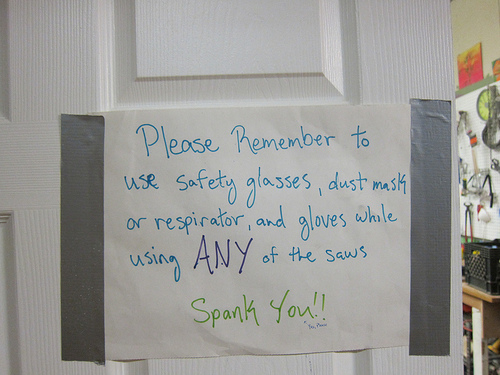 Please Remember to
use safety glasses, dust mask
or respirator, and gloves while
using ANY of the saws
Spank You!!